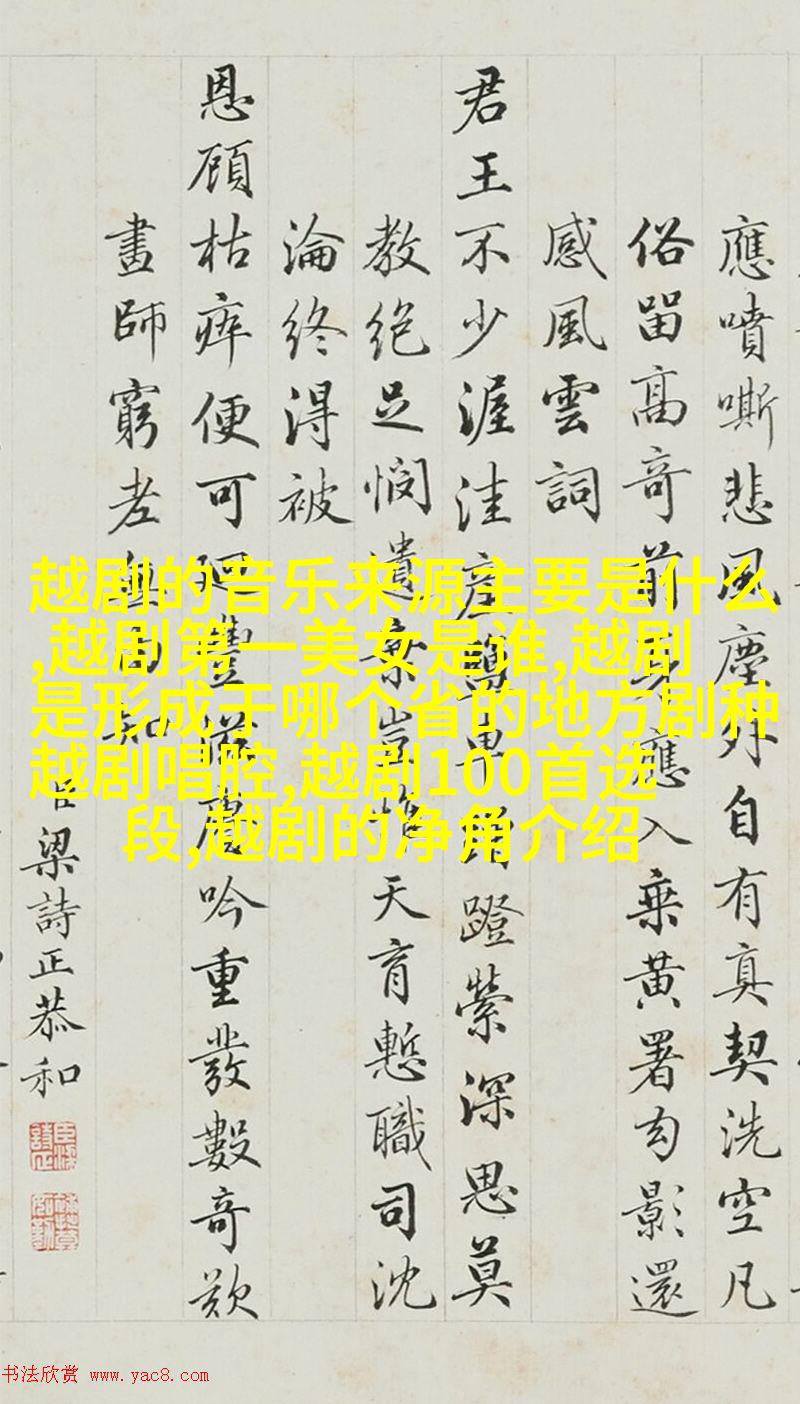 應噴嘶悲風塵外自有真契洗空凡
俗留高奇前身應入乘黃署勾影還
感風雲詞
君王不少渥洼産蹬縈深思莫
教絕足憫遺棄天育慙職司沈
淪終淂被
恩顧枯瘁便可迴豐吟重發數奇欵
畫師窮老
臣梁詩正恭和
越剧的音乐来源主要是什么
,越剧第一美女是谁,越剧
是形成于哪个省的地方剧种
越剧唱腔,越剧100首选
段,越剧的净角介绍
书法欣赏 www.yac8.com